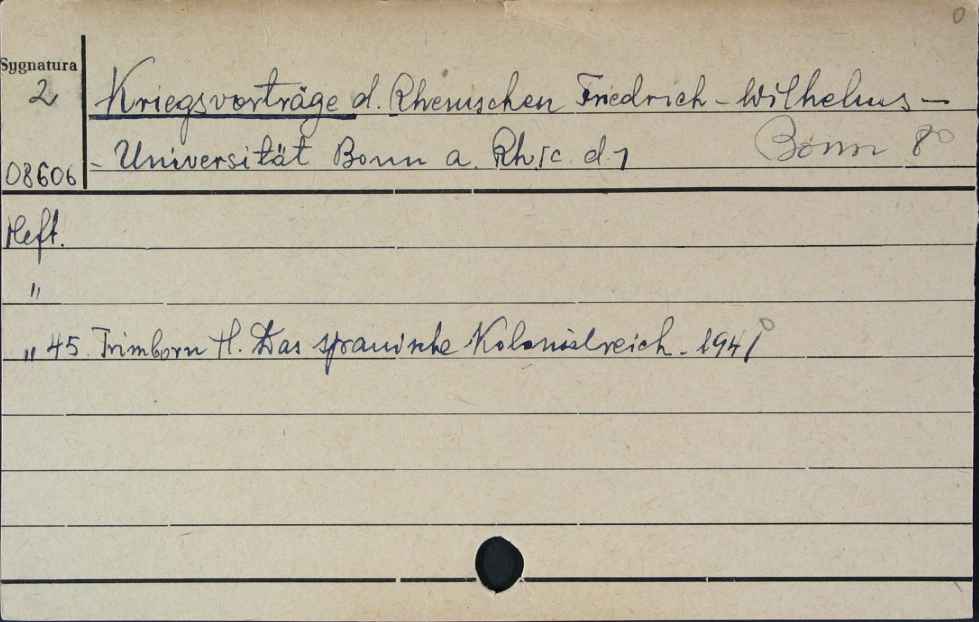 0
Sygnatura
2 Kriegsvorträge d. Rheinischen Friedrich-Wilhelms-
08606 - Universität Bonn a. Rh. [c. d.] Bonn 8°
Heft.
"
" 45. Trimborn H. Das spanische Kolonialreich. 1941